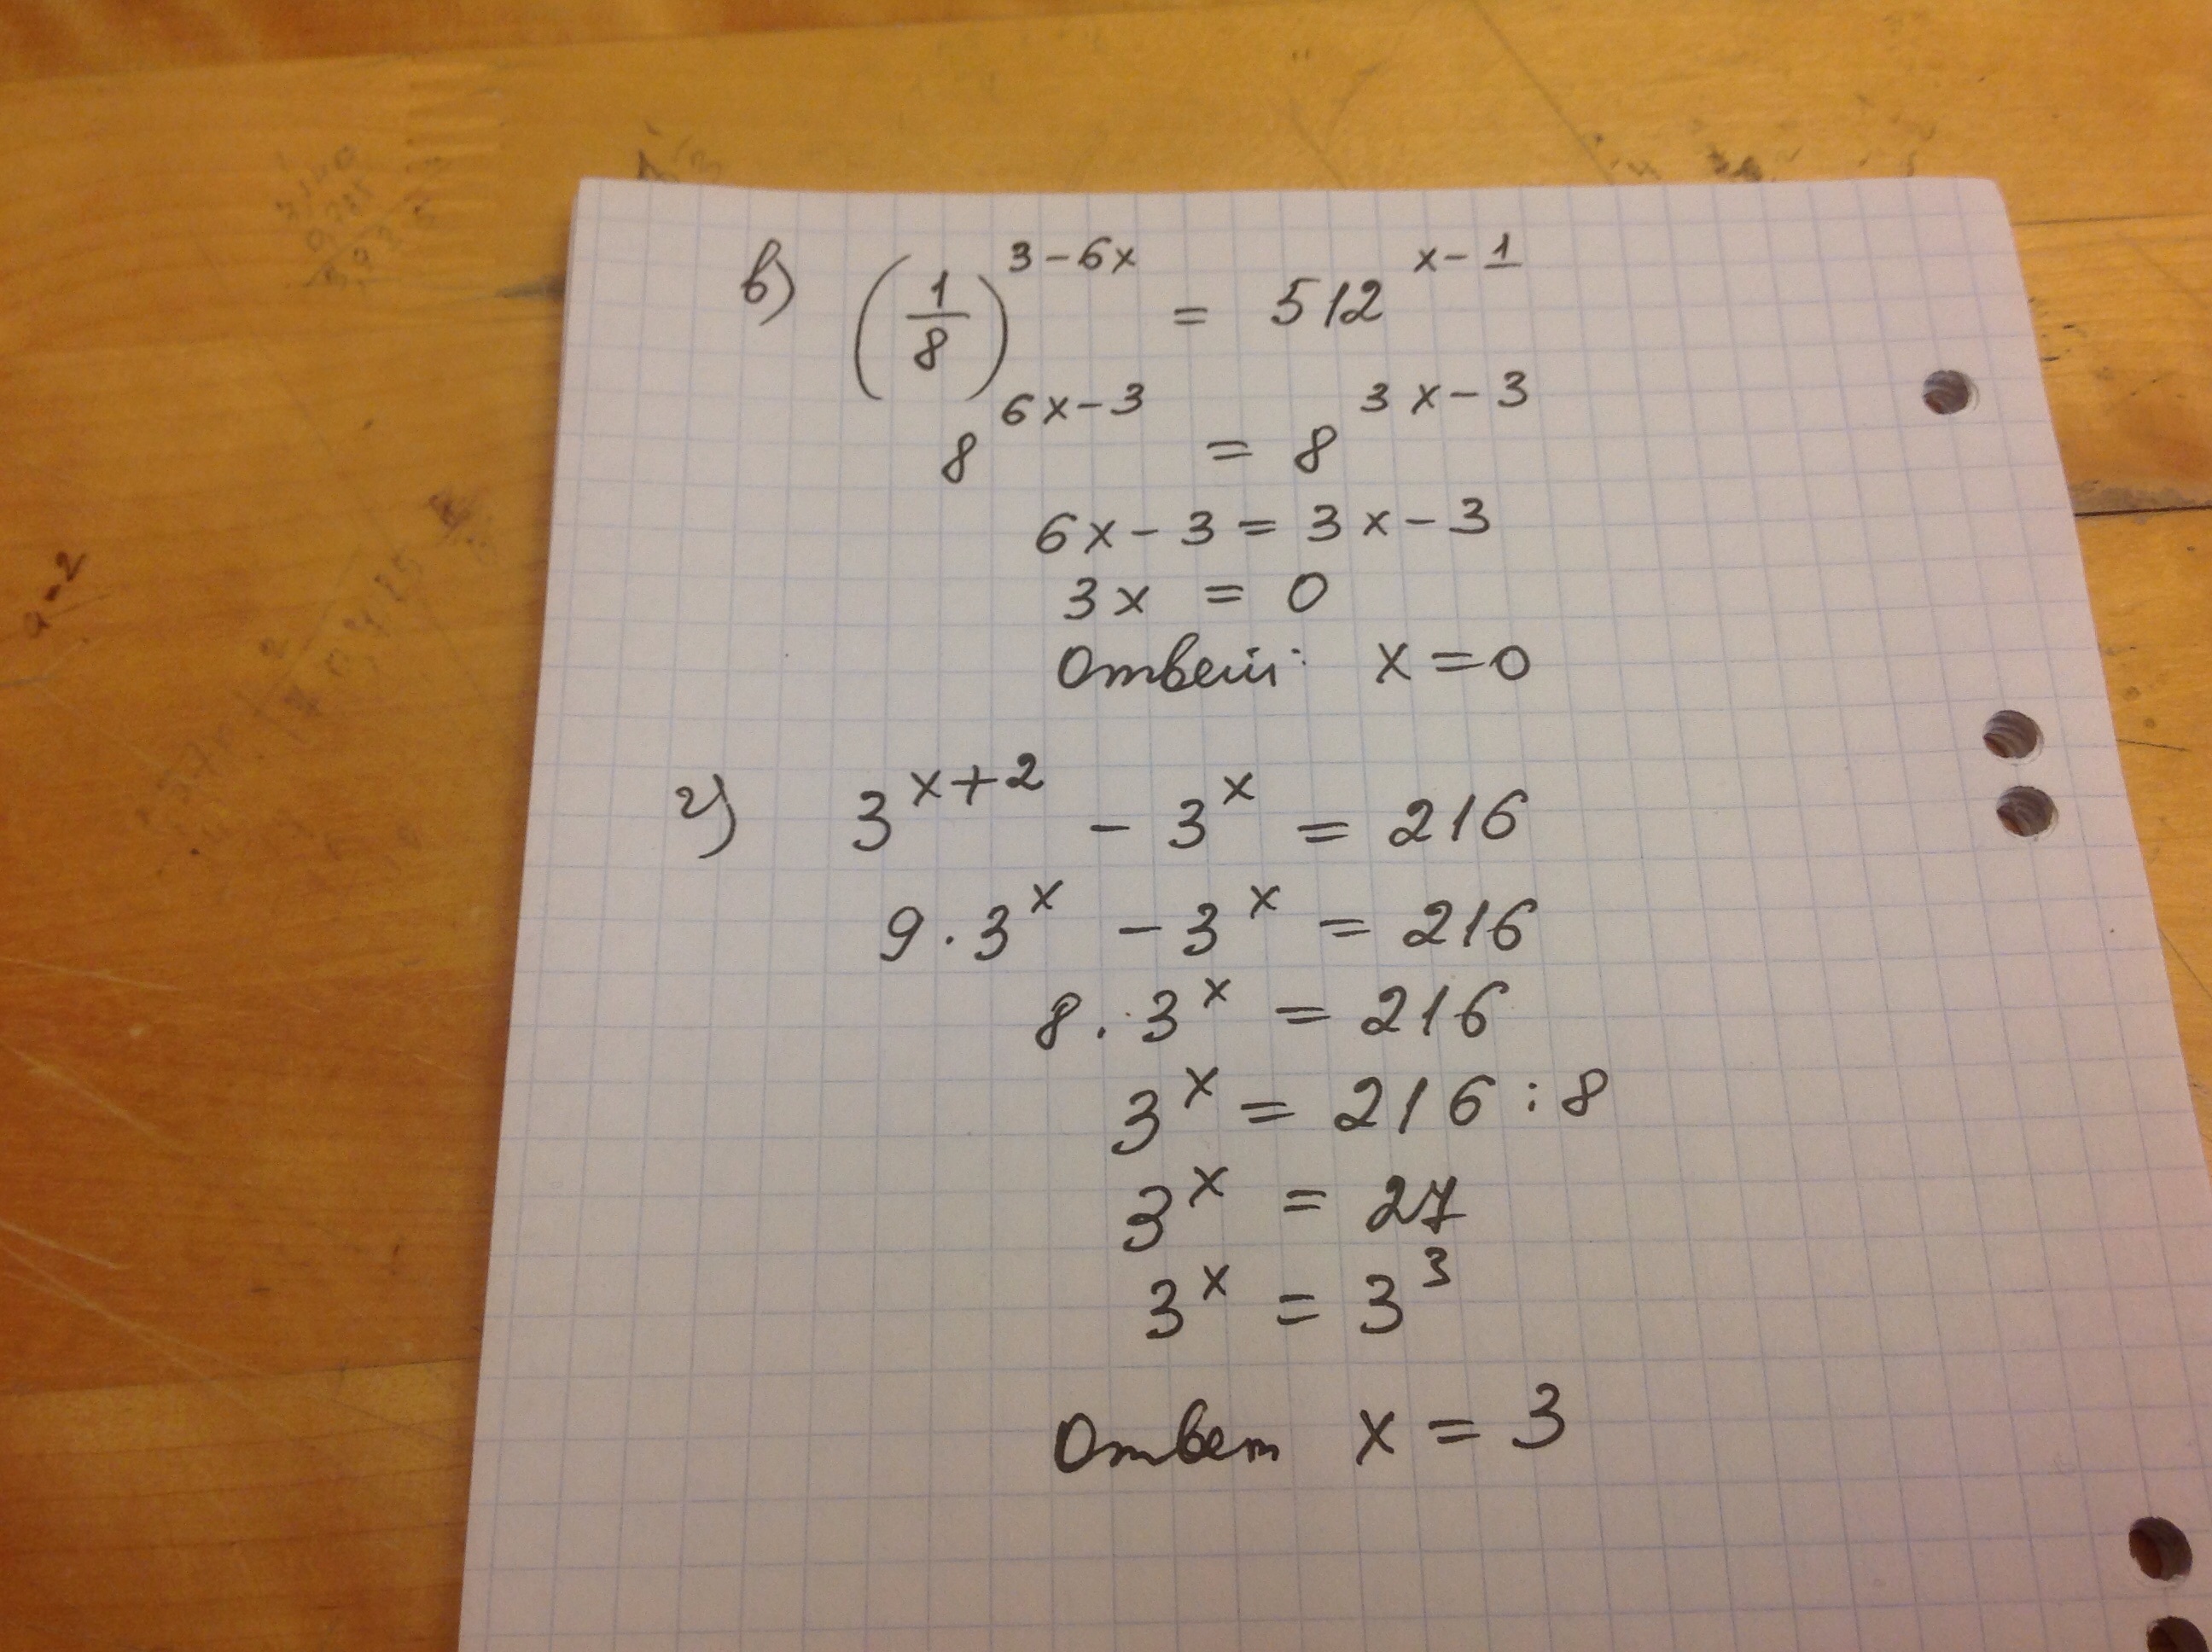 в) (1/8)^(3-6x) = 512^(x-1)
8^(6x-3) = 8^(3x-3)
6x-3 = 3x-3
3x = 0
Ответ: x=0
г) 3^(x+2) - 3^x = 216
9·3^x - 3^x = 216
8·3^x = 216
3^x = 216:8
3^x = 27
3^x = 3^3
Ответ x = 3
a-2